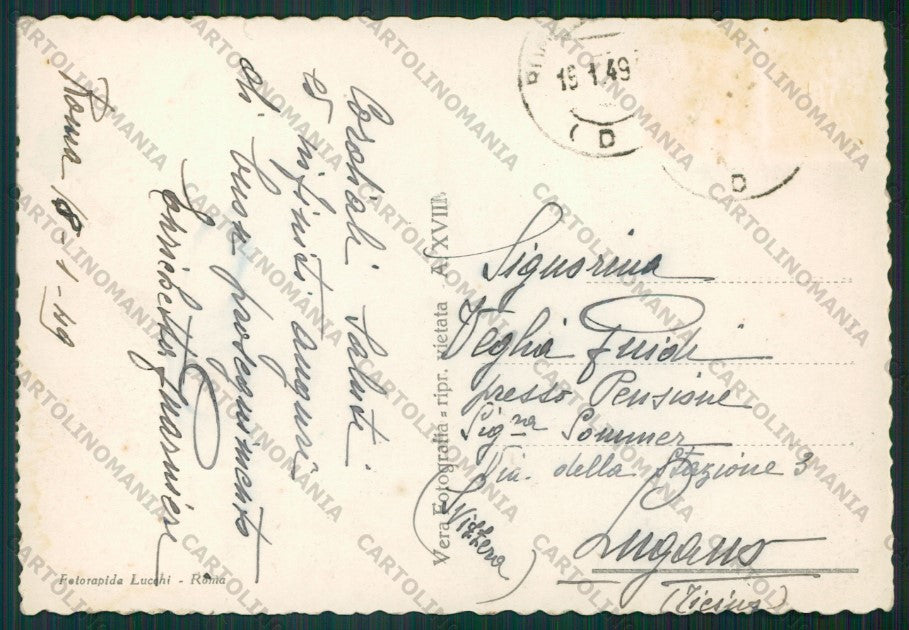 Roma 18-1-49
Cordiali saluti
e infiniti auguri
di buon proseguimento
Fotorapida Lucchi - Roma
Vera Fotografia - ripr. vietata A. XVIII.
15.1.49
D
D
Signorina
Veglia Guidi
presso Pensione
Sig.na Sommer
Via della Stazione 3
Lugano
(Ticino)
(Svizzera)
CARTOLINOMANIA